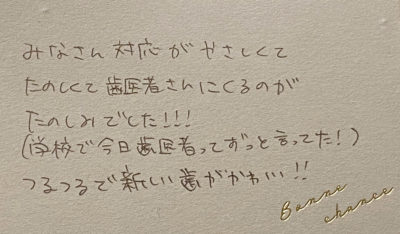 みなさん対応がやさしくて
たのしくて歯医者さんにくるのが
たのしみでした!!!
(学校で今日歯医者ってずっと言ってた!)
つるつるで新しい歯がかわいい!!
Bonne
chance